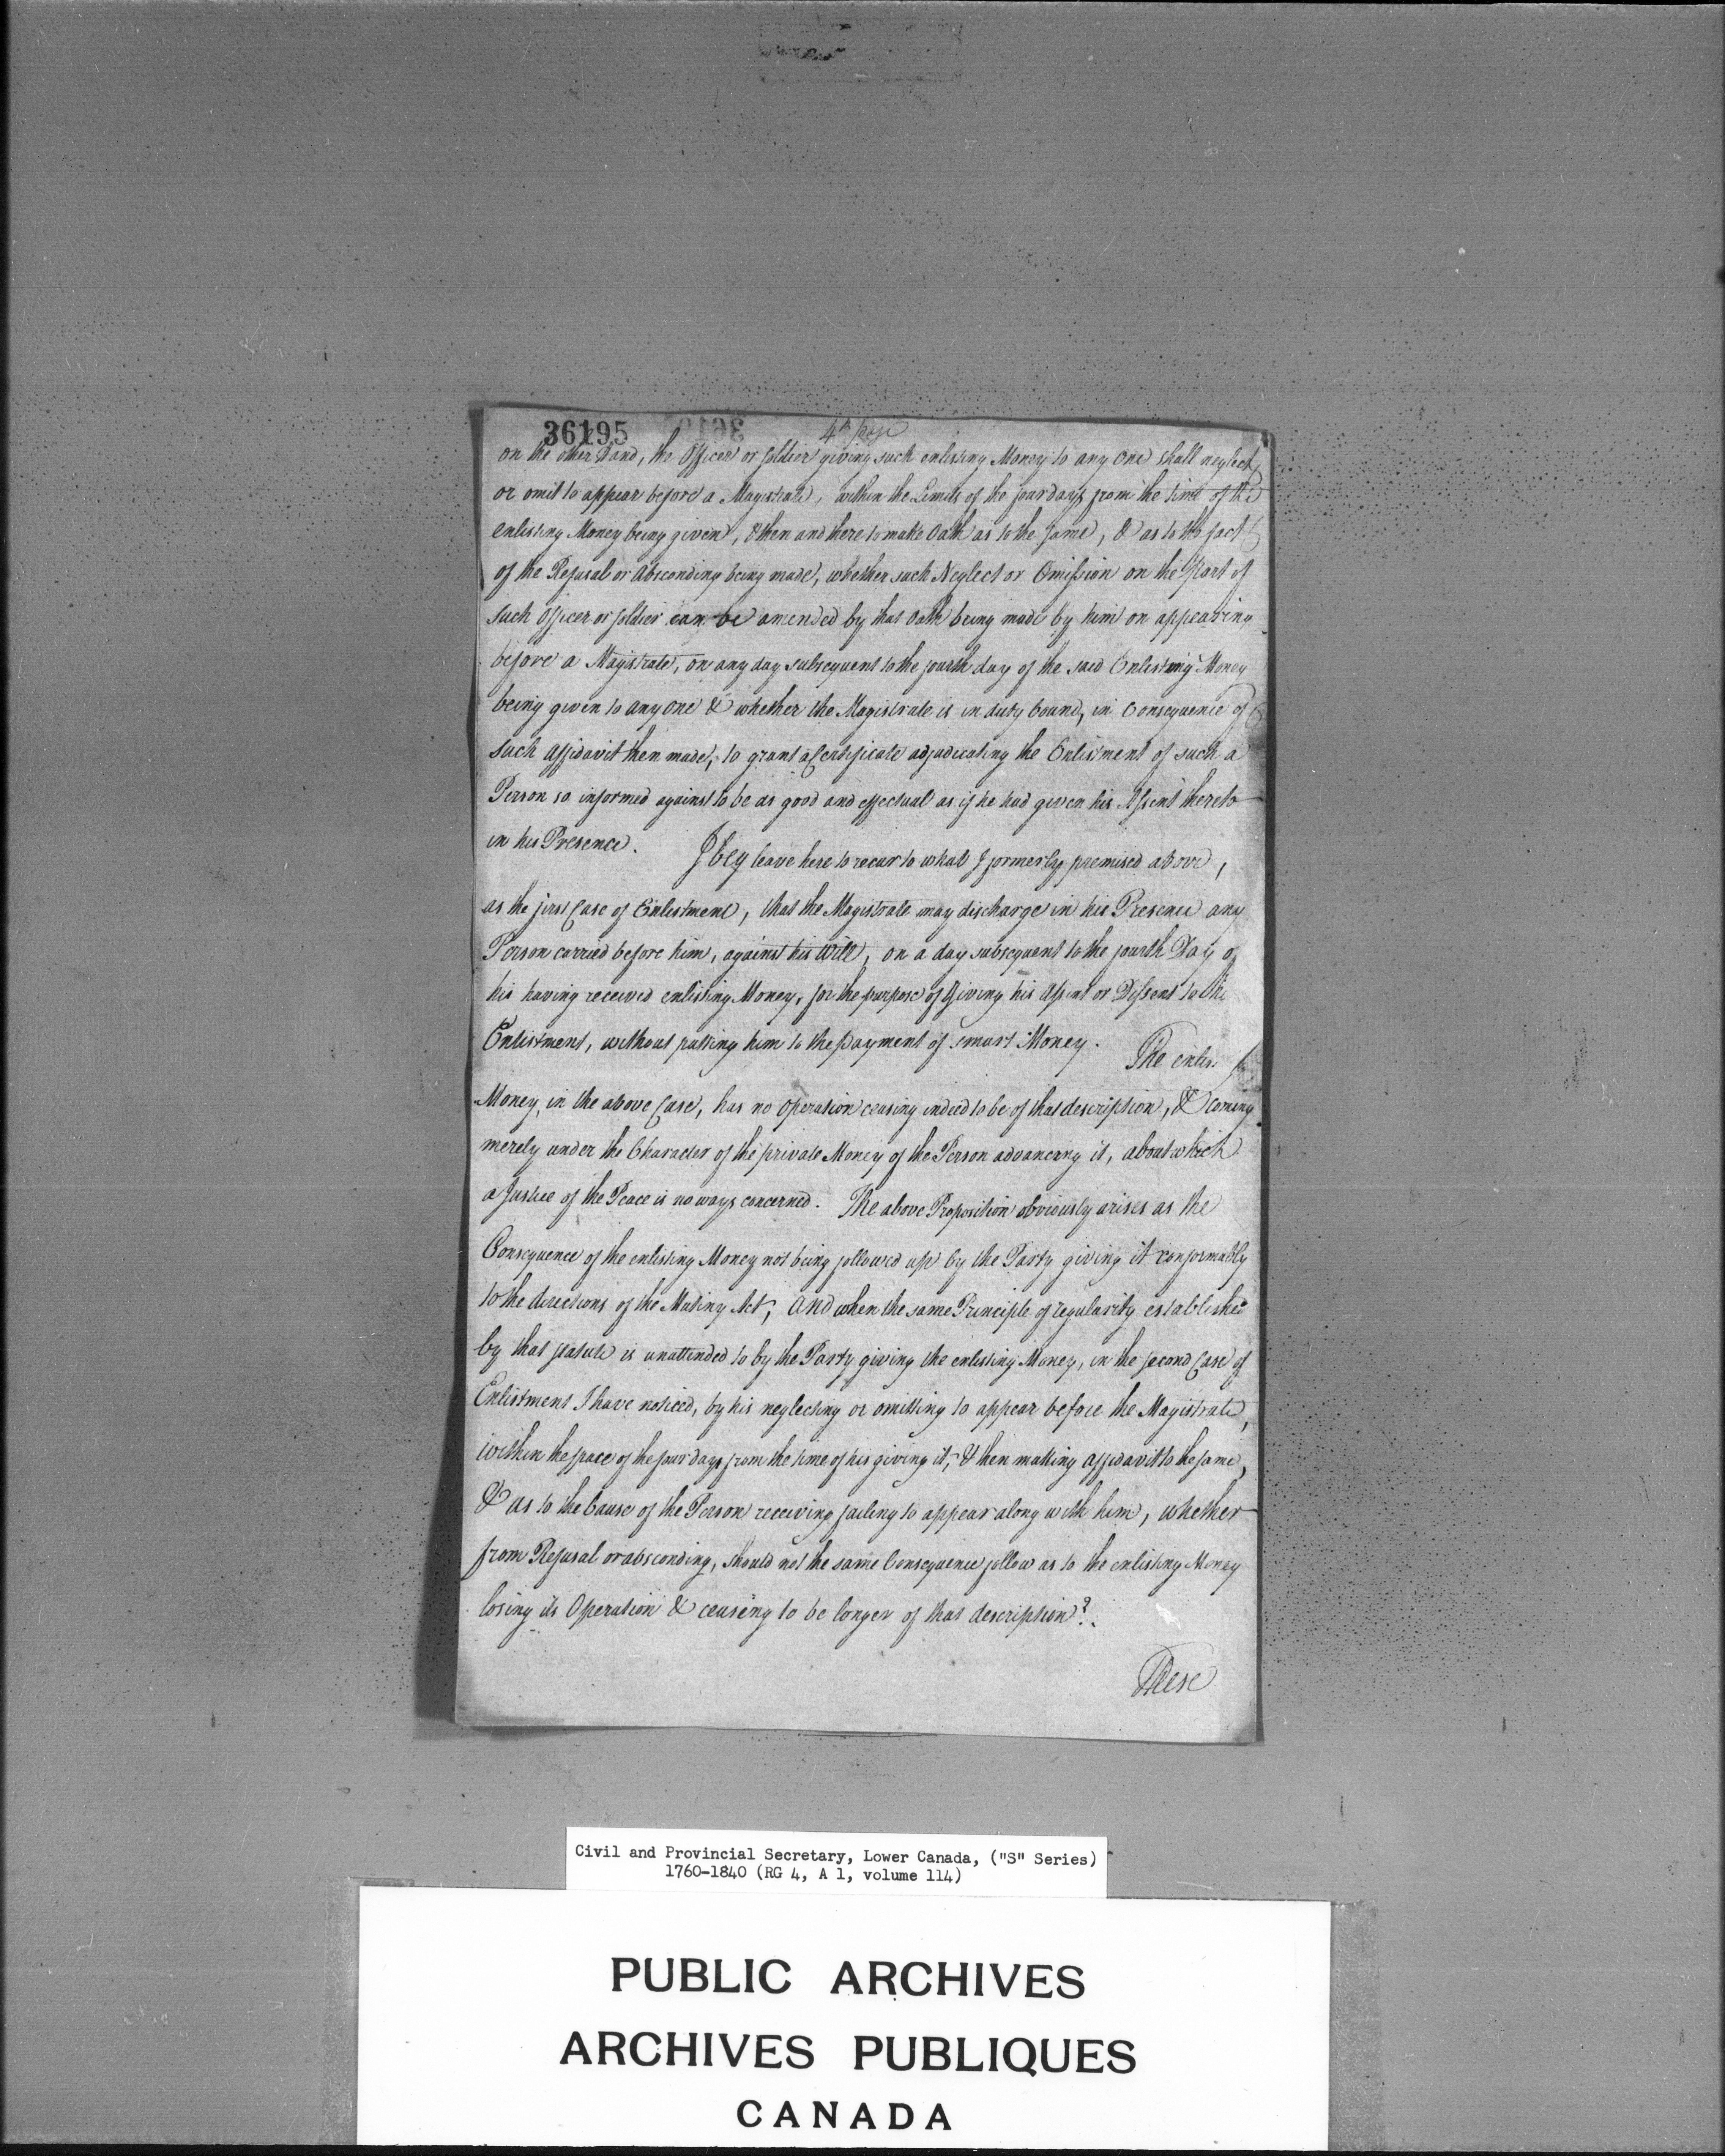 36195
4th page
on the other Hand, the Officer or Soldier giving such enlisting Money to any one shall neglect
or omit to appear before a Magistrate, within the Limits of the four days from the time of the
enlisting Money being given, & then and there to make Oath as to the same, & as to the fact
of the Refusal or Absconding being made, whether such Neglect or Omission on the Part of
such Officer or Soldier can be amended by that Oath being made by him on appearing
before a Magistrate, on any day subsequent to the fourth day of the said Enlisting Money
being given to any one & whether the Magistrate is in duty bound, in Consequence of
such Affidavit then made, to grant a Certificate adjudicating the Enlistment of such a
Person so informed against to be as good and effectual as if he had given his Assent thereto
in his Presence. I beg leave here to recur to what I formerly premised above,
as the first Case of Enlistment, that the Magistrate may discharge in his Presence any
Person carried before him, against his Will, on a day subsequent to the fourth Day of
his having received enlisting Money, for the purpose of Giving his Assent or Dissent to the
Enlistment, without putting him to the payment of smart Money. The enlis
Money, in the above Case, has no Operation ceasing indeed to be of that description, & coming
merely under the Character of the private Money of the Person advancing it, about which
a Justice of the Peace is no ways concerned. The above Proposition obviously arises as the
Consequence of the enlisting Money not being followed up by the Party giving it conformably
to the directions of the Mutiny Act; and when the same Principle of regularity established
by that statute is unattended to by the Party giving the enlisting Money, in the second Case of
Enlistment I have noticed, by his neglecting or omitting to appear before the Magistrate,
within the space of the four days from the time of his giving it, & then making affidavit to the same,
& as to the Cause of the Person receiving failing to appear along with him, whether
from Refusal or absconding, should not the same Consequence follow as to the enlisting Money
losing its Operation & ceasing to be longer of that description?
These
Civil and Provincial Secretary, Lower Canada, ("S" Series)
1760-1840 (RG 4, A 1, volume 114)
PUBLIC ARCHIVES
ARCHIVES PUBLIQUES
CANADA